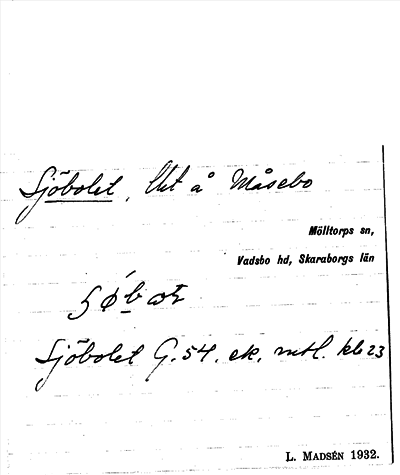 Sjöbolet, Ut å Måsebo
Mölltorps sn,
Vadsbo hd, Skaraborgs län
Sjöbolet G. 54. ek. mtl. kb 23
L. MADSÉN 1932.